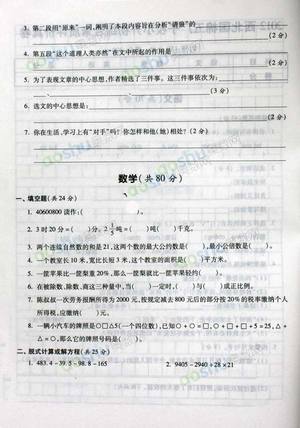 3. 第二段用“原来”一词,阐明了本段内容旨在分析“请狼”的
(2分)
4. 第五段“这个道理人类亦然”在文中所起的作用是
(2分)
5. 为了表现文章的中心思想,作者精选了三件事。这三件事依次为:
、 、 。(3分)
6. 选文的中心思想是:
。(2分)
7. 你在生活,学习上有“对手”吗? 你怎样和他(她)相处? (2分)
数学(共80分)
一、填空题(共24分)
1. 40600800 读作:( )。
2. 3时20分=( )分。2 1/5 吨=( )吨( )千克。
3. 两个连续自然数的和是21,这两个数的最大公约数是( ),最小公倍数是( )。
4. 一个教室长10米,宽比长短3米,这个教室的面积是( )平方米。
5. 一筐苹果比一筐梨重20%,那么一筐梨就比一筐苹果轻约( )。
6. 在被除数、除数、商这三种量中,当( )一定时,( )与( )成正比例。
7. 陈叔叔一次劳务报酬所得为2000元,按规定减去800元后的部分按20%的税率缴纳个人
所得税,应缴纳( )元。
8. 一辆小汽车的牌照是○□△5(一个四位数),已知○+○=□,○+□+□+5=25,△+
△=○,那么它的牌照号码是( )。
二、脱式计算或解方程(共25分)
1. 483.4-39.5-98.8-165 2. 9405-2940÷28×21